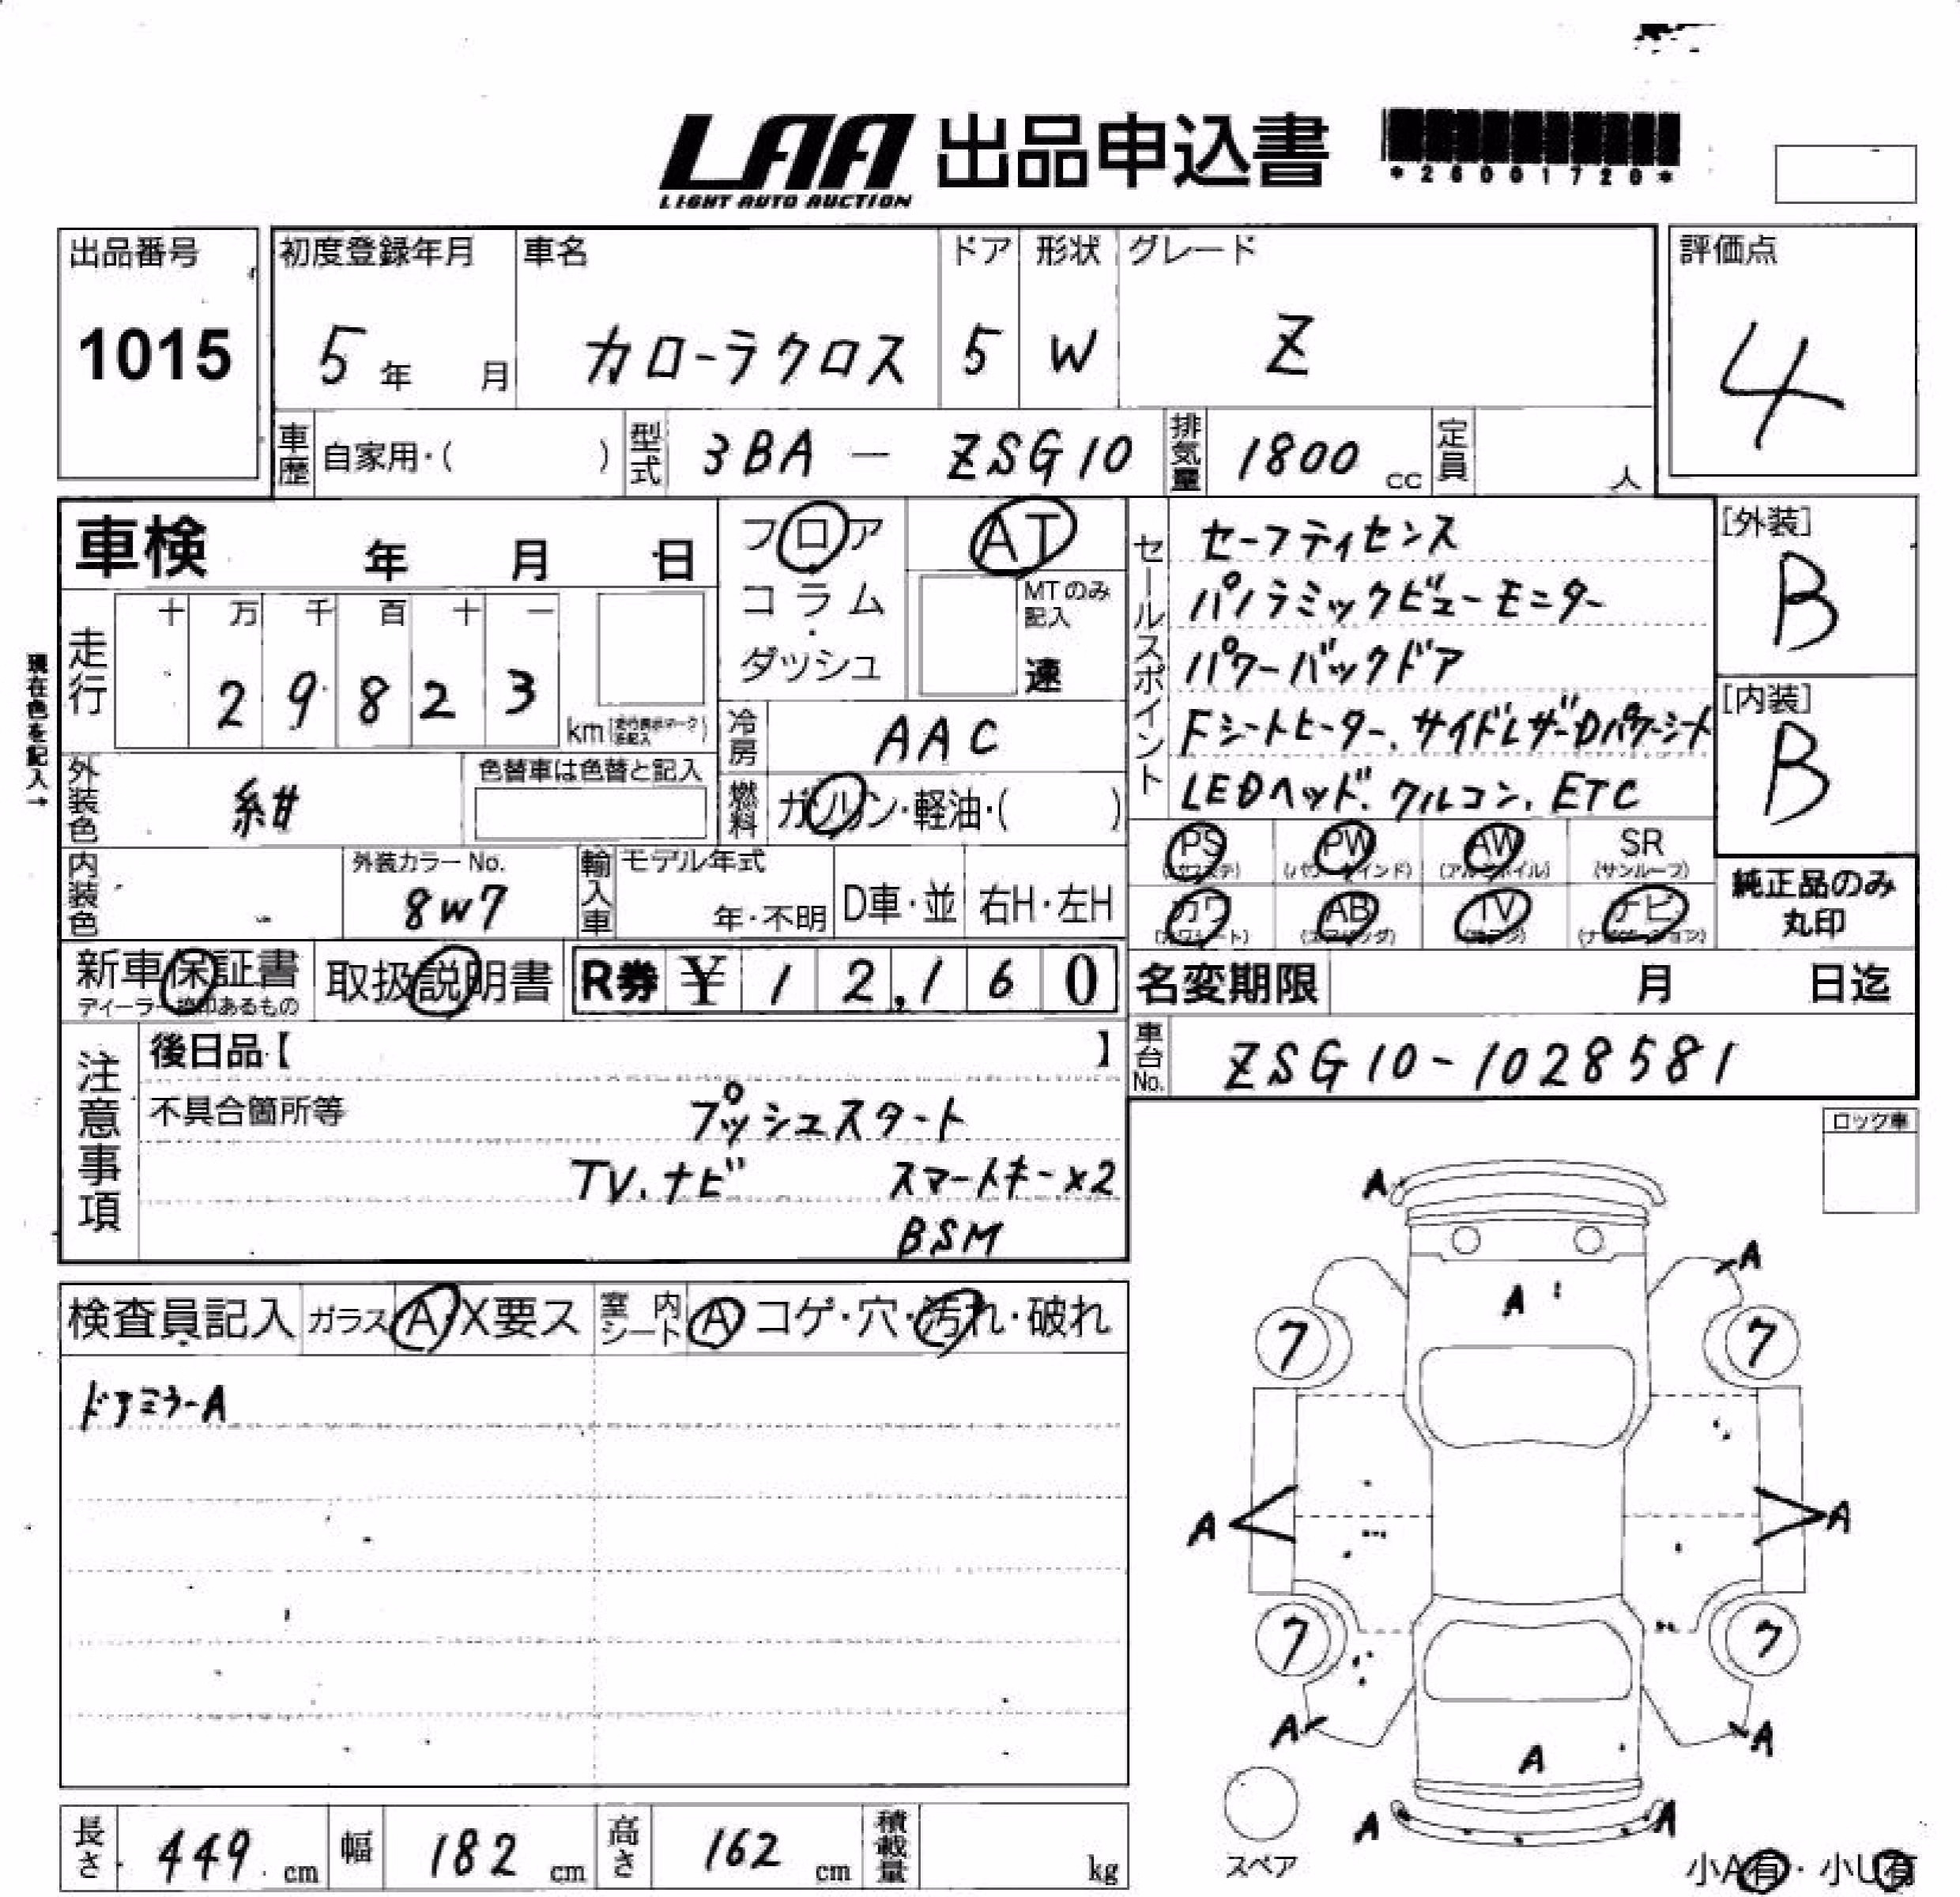 LAA 出品申込書
LIGHT AUTO AUCTION
*26001720*
出品番号
1015
初度登録年月
5年 月
車名
カローラクロス
ドア
5
形状
W
グレード
Z
評価点
4
車歴 自家用・( )
型式 3BA - ZSG10
排気量 1800 cc
定員 人
車検 年 月 日
フロア
・
コラム
・
ダッシュ
AT
MTのみ記入
速
セールスポイント
セーフティセンス
パノラミックビューモニター
パワーバックドア
Fシートヒーター、サイドレザーDパワーシート
LEDヘッド、クルコン、ETC
[外装]
B
[内装]
B
現在色を記入→
走行
十 万 千 百 十 一
2 9 8 2 3
km
冷房 AAC
燃料 ガソリン・軽油・( )
外装色 紺
色替車は色替と記入
内装色
外装カラーNo.
8W7
輸入車
モデル年式
年・不明
D車・並
右H・左H
PS
PW
AW
SR
(サンルーフ)
カワ
AB
TV
ナビ
純正品のみ
丸印
新車保証書
取扱説明書
R券 ¥ 12,160
名変期限 月 日迄
車台No. ZSG10-1028581
注意事項
後日品【 】
不具合箇所等
プッシュスタート
TV、ナビ スマートキー×2
BSM
ロック車
検査員記入
ガラス A X要ス
室内シート A コゲ・穴・汚れ・破れ
ドアミラーA
A
A
A
7
7
A
A
7
7
A
A
A
A
A
スペア
小A有・小U有
長さ 449 cm
幅 182 cm
高さ 162 cm
積載量 kg